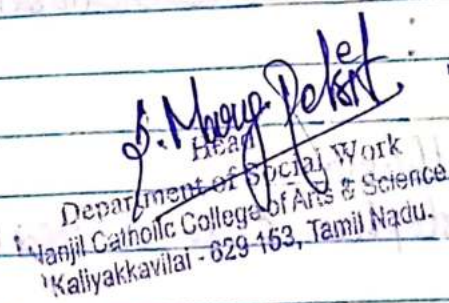 Head
Department of Social Work
Nanjil Catholic College of Arts & Science
Kaliyakkavilai - 629 153, Tamil Nadu.